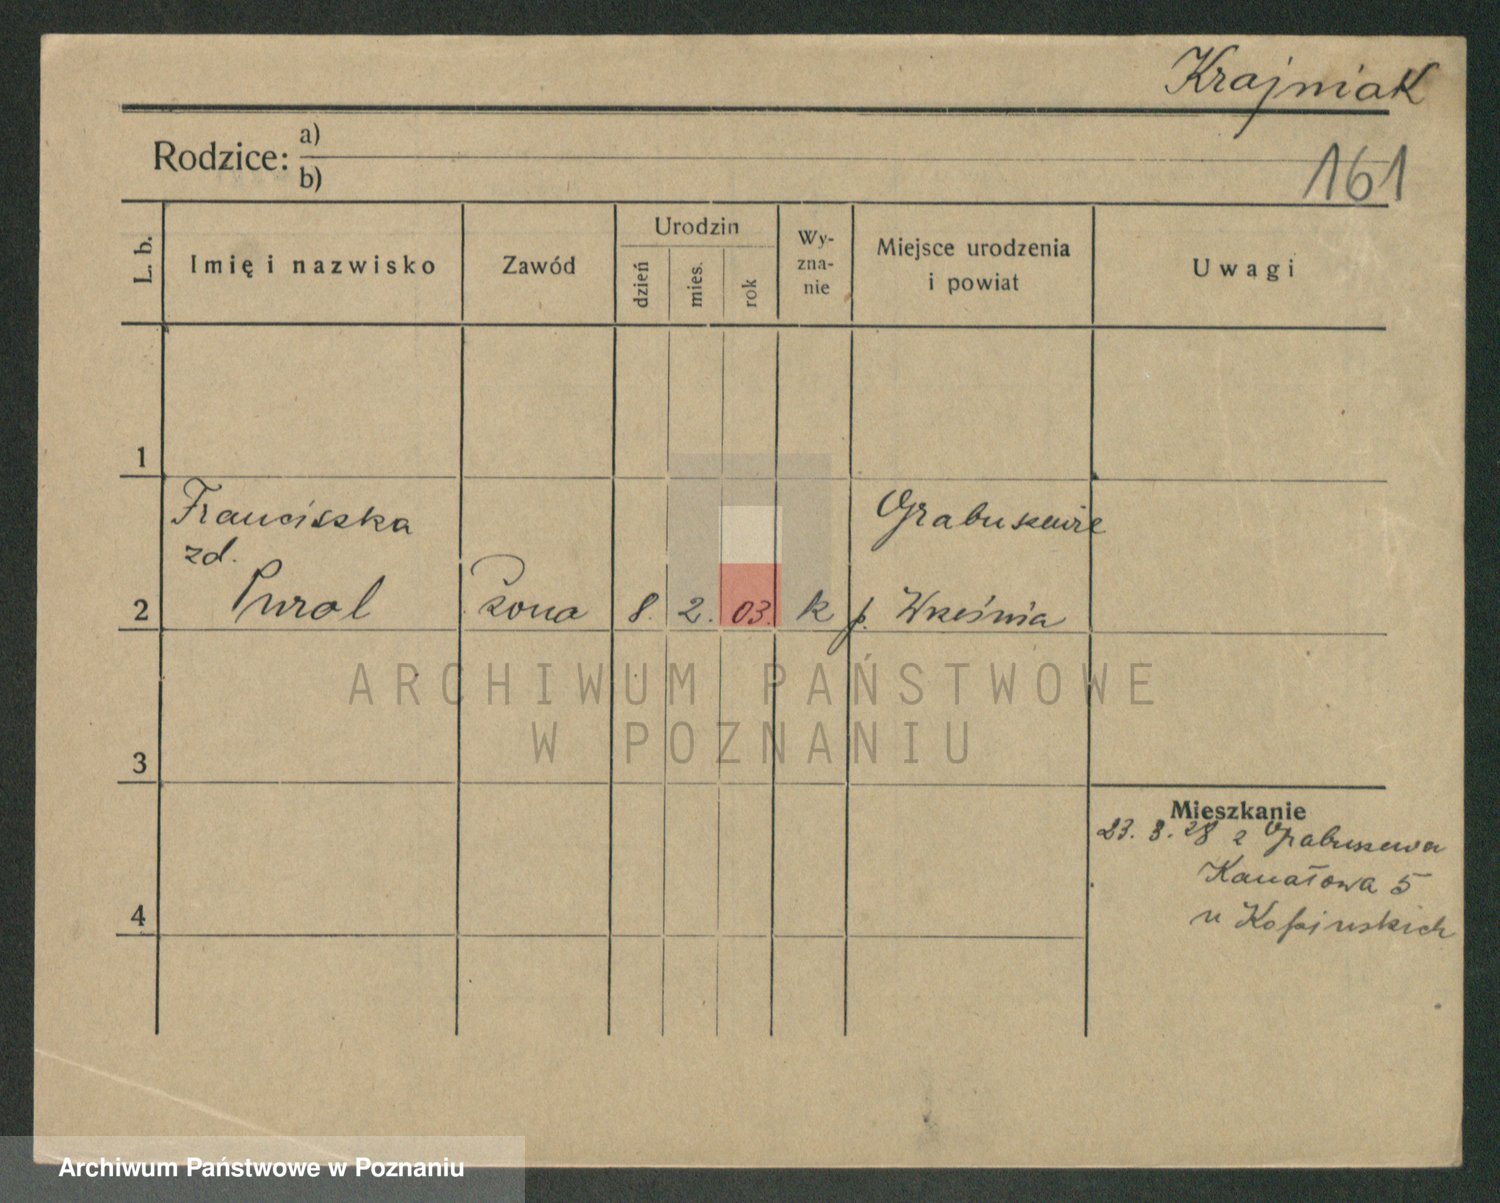 Krajniak
161
Rodzice:
a)
b)
L. b.
Imię i nazwisko
Zawód
Urodzin
dzień
mies.
rok
Wy-
zna-
nie
Miejsce urodzenia
i powiat
Uwagi
1
Franciszka
zd.
Pural
2
żona
8.
2.
03.
k
Grabuszewie
p. Września
3
4
Mieszkanie
23. 3. 28 z Grabuszewa
Kanałowa 5
u
ARCHIWUM PAŃSTWOWE
W POZNANIU
Archiwum Państwowe w Poznaniu